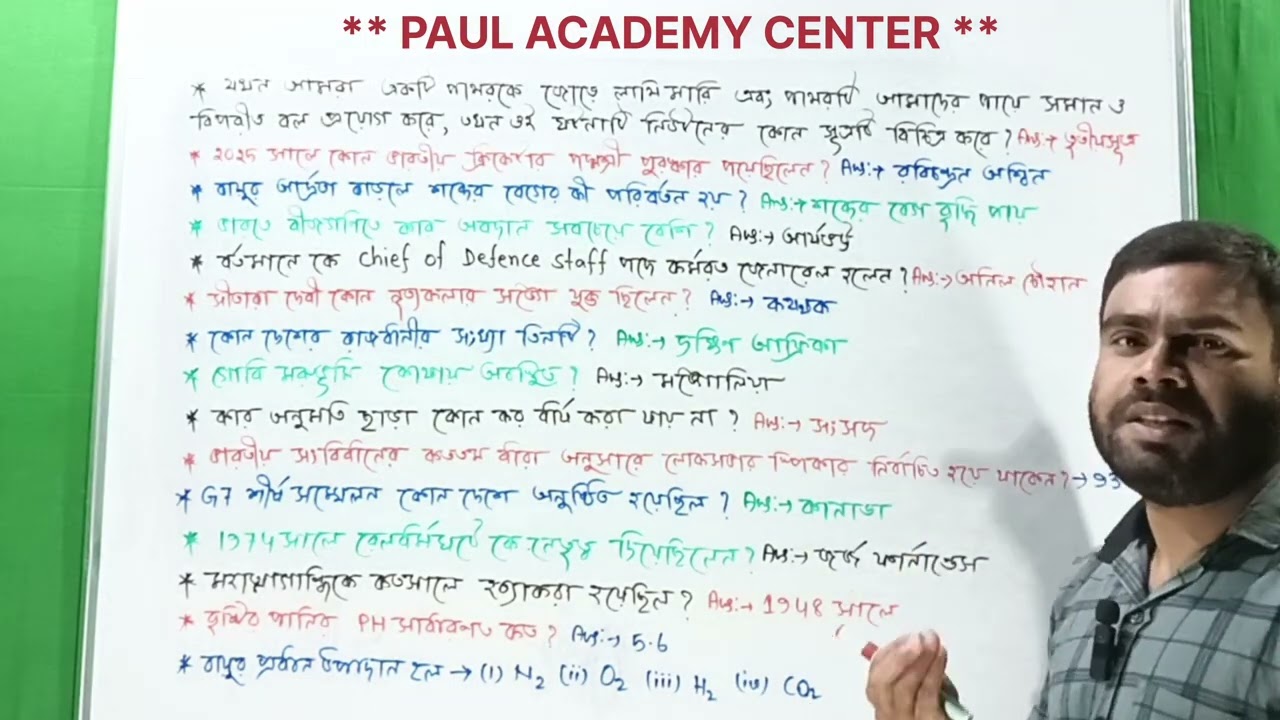 ** PAUL ACADEMY CENTER **
* যখন আমরা একটি পাথরকে জোরে লাথি মারি এবং পাথরটি আমাদের পায়ে সমান ও
বিপরীত বল প্রয়োগ করে, তখন ওই ঘটনাটি নিউটনের কোন সূত্রটি বিবৃত করে ? Ans:→ তৃতীয়সূত্র
* 2025 সালে কোন ভারতীয় ক্রিকেটার পদ্মশ্রী পুরস্কার পেয়েছিলেন ? Ans:→ রবিচন্দ্রন অশ্বিন
* বায়ুর আর্দ্রতা বাড়লে শব্দের বেগের কী পরিবর্তন হয় ? Ans:→ শব্দের বেগ বৃদ্ধি পায়
* ভারতে বীজগণিতে কার অবদান সবচেয়ে বেশি ? Ans:→ আর্যভট্ট
* বর্তমানে কে Chief of Defence Staff পদে কর্মরত জেনারেল হলেন ? Ans:→ অনিল চৌহান
* সীতারা দেবী কোন নৃত্যকলার সঙ্গে যুক্ত ছিলেন ? Ans:→ কত্থক
* কোন দেশের রাজধানীর সংখ্যা তিনটি ? Ans:→ দক্ষিণ আফ্রিকা
* গোবি মরুভূমি কোথায় অবস্থিত ? Ans:→ মঙ্গোলিয়া
* কার অনুমতি ছাড়া কোন কর ধার্য করা যায় না ? Ans:→ সংসদ
* ভারতীয় সংবিধানের কততম ধারা অনুসারে লোকসভার স্পিকার নির্বাচিত হয়ে থাকেন ? → 93
* G7 শীর্ষ সম্মেলন কোন দেশে অনুষ্ঠিত হয়েছিল ? Ans:→ কানাডা
* 1974 সালে রেলধর্মঘটে কে নেতৃত্ব দিয়েছিলেন ? Ans:→ জর্জ ফার্নান্ডেস
* মহাত্মাগান্ধিকে কতসালে হত্যাকরা হয়েছিল ? Ans:→ 1948 সালে
* বৃষ্টির পানির PH সাধারণত কত ? Ans:→ 5.6
* বায়ুর প্রধান উপাদান হল → (i) N₂ (ii) O₂ (iii) H₂ (iv) CO₂